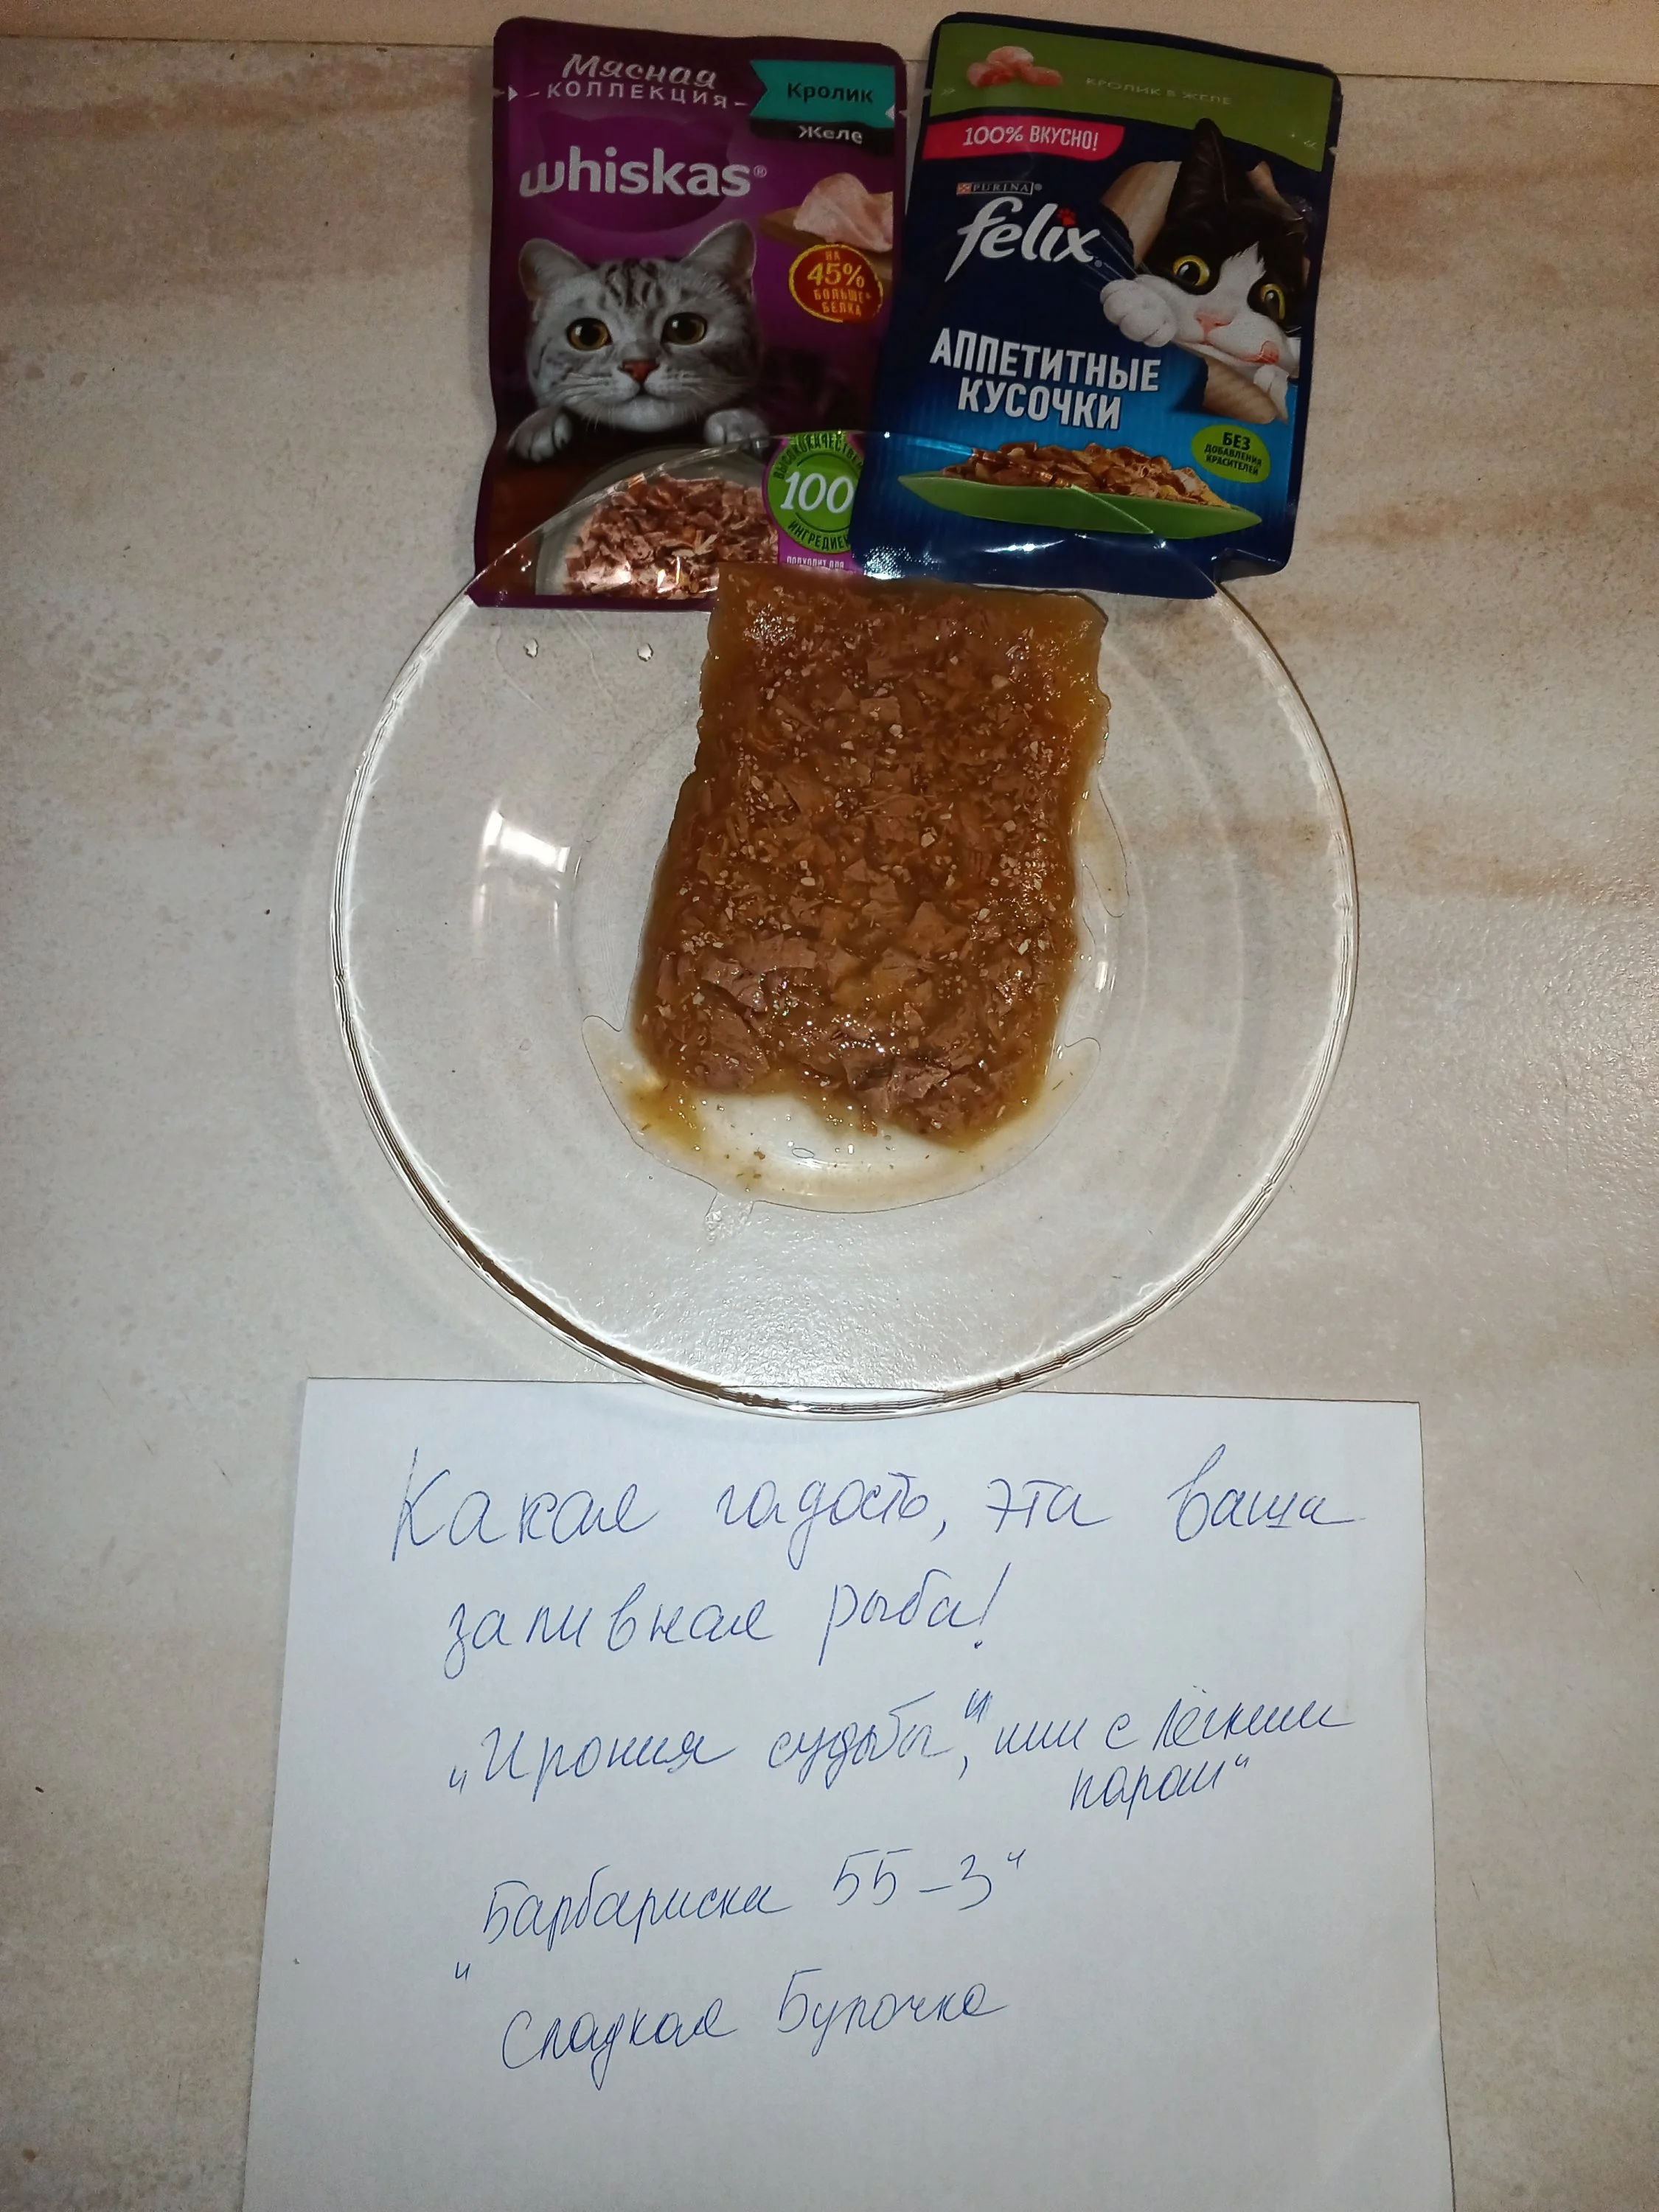 Мясная
КОЛЛЕКЦИЯ
Кролик
Желе
whiskas®
НА
45%
БОЛЬШЕ*
БЕЛКА
ВЫСОКОКАЧЕСТВЕ
100
ИНГРЕДИЕН
ПОДХОДИТ ДЛЯ
КРОЛИК В ЖЕЛЕ
100% ВКУСНО!
PURINA®
felix®
АППЕТИТНЫЕ
КУСОЧКИ
БЕЗ
ДОБАВЛЕНИЯ
КРАСИТЕЛЕЙ
Какая гадость, эта ваша
заливная рыба!
„Ирония судьбы“, или с лёгким
паром“
Барбариски 55-3“
„
Сладкая Булочка